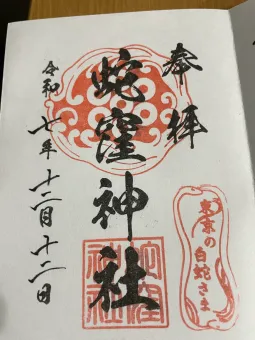 奉拝
蛇窪神社
令和七年十二月十二日
東京の白蛇さま
蛇窪神社